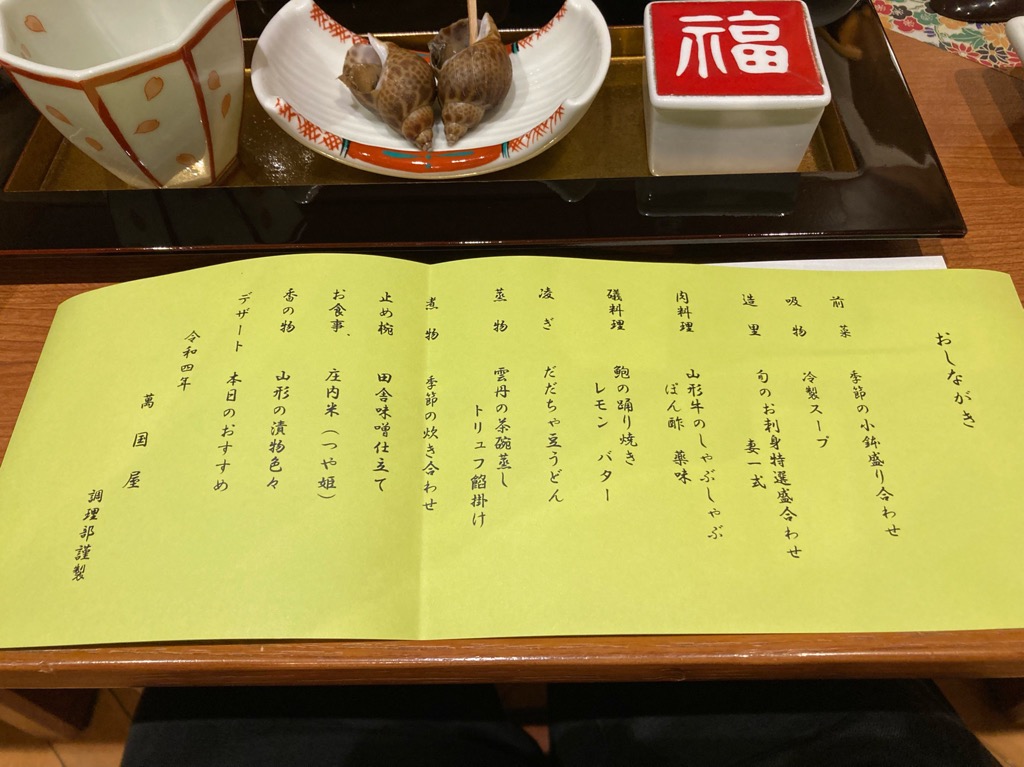 福
おしながき
前菜 季節の小鉢盛り合わせ
吸物 冷製スープ
造里 旬のお刺身特選盛合わせ
妻一式
肉料理 山形牛のしゃぶしゃぶ
ぽん酢 薬味
礒料理 鮑の踊り焼き
レモン バター
凌ぎ だだちゃ豆うどん
蒸物 雲丹の茶碗蒸し
トリュフ餡掛け
煮物 季節の炊き合わせ
止め椀 田舎味噌仕立て
お食事、 庄内米(つや姫)
香の物 山形の漬物色々
デザート 本日のおすすめ
令和四年
萬国屋
調理部謹製